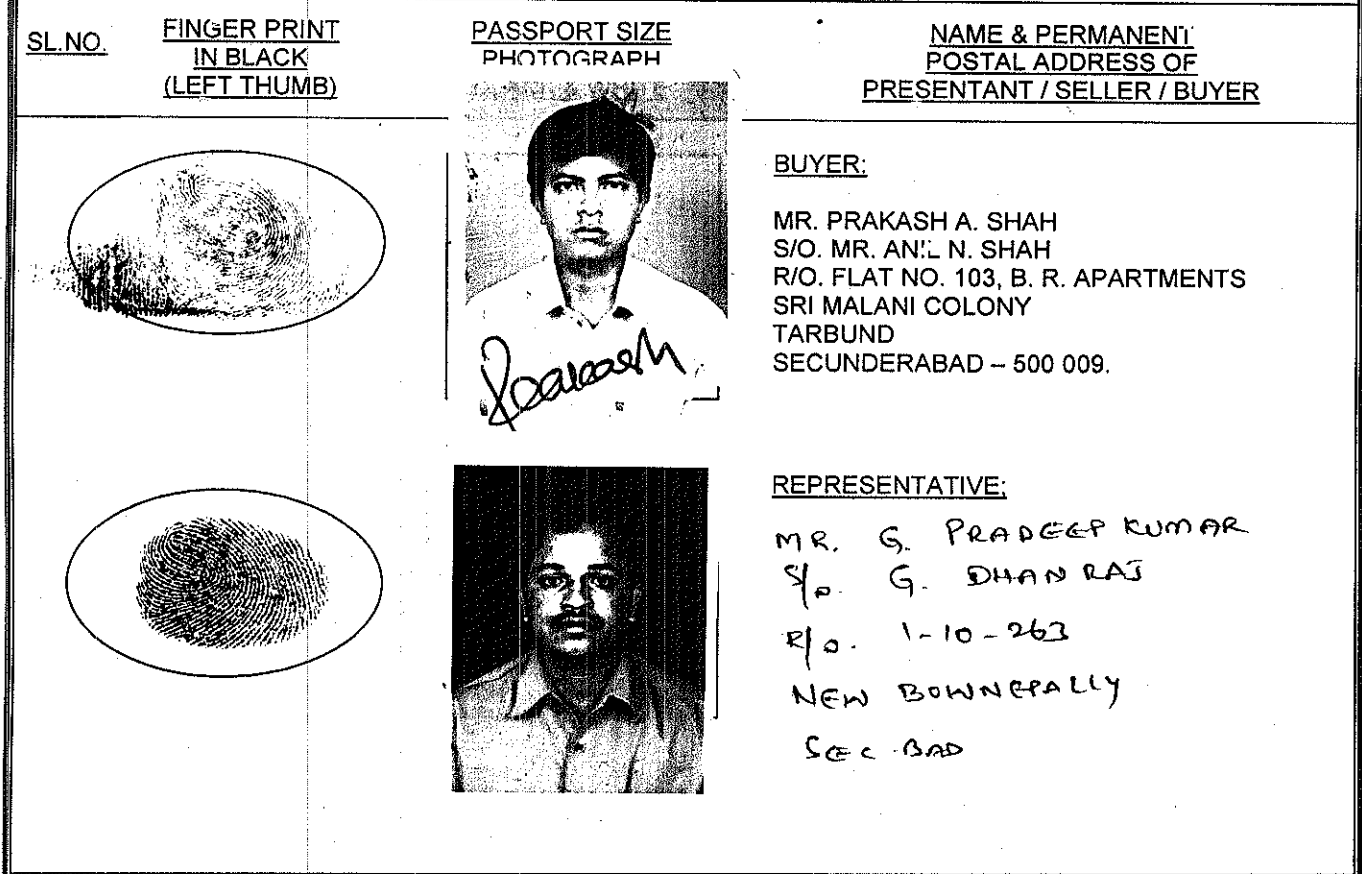 SL.NO.
FINGER PRINT
IN BLACK
(LEFT THUMB)
PASSPORT SIZE
PHOTOGRAPH
NAME & PERMANENT
POSTAL ADDRESS OF
PRESENTANT / SELLER / BUYER
BUYER:
MR. PRAKASH A. SHAH
S/O. MR. ANIL N. SHAH
R/O. FLAT NO. 103, B. R. APARTMENTS
SRI MALANI COLONY
TARBUND
SECUNDERABAD – 500 009.
Prakash
REPRESENTATIVE:
MR. G. PRADEEP KUMAR
S/o. G. DHANRAJ
R/o. 1-10-263
NEW BOWNEPALLY
SEC-BAD